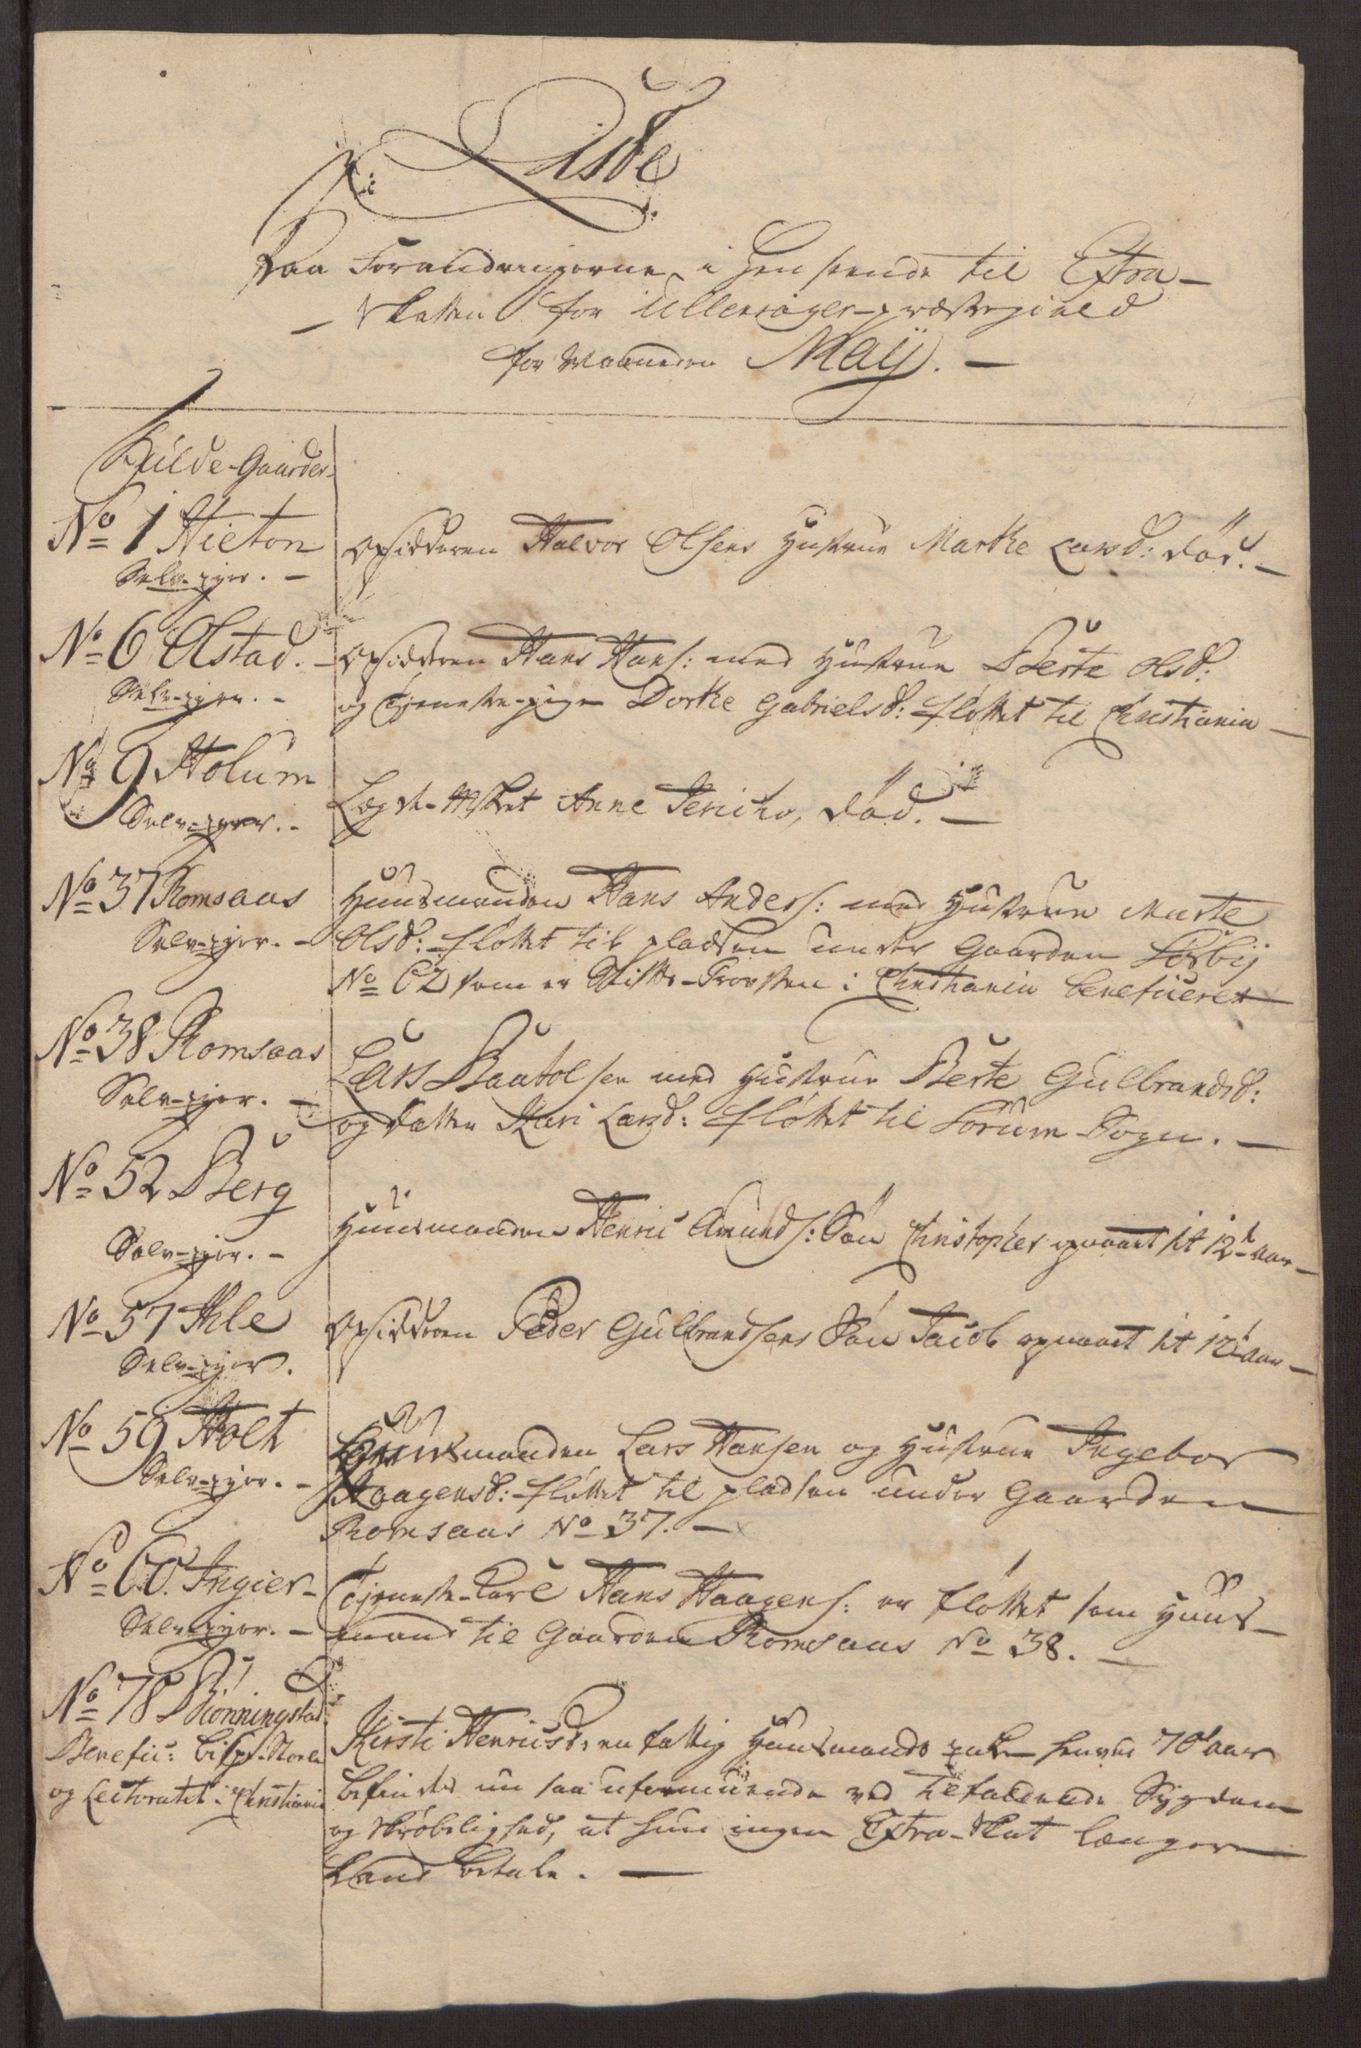 Liste
Paa Forandringerne i Henseende til Extra-
Skatten for Ullensager-præstegield
for Maaneden Maij. -
Fulde-Gaarder
No 1 Hieton
Selv-ejer. -
Opsidderen Halvor Olsens Hustrue Marthe Larsd: død. -
No 6 Olstad. -
Selv-ejer. -
Opsidderen Hans Hans: med Hustrue Berte Olsd:
og tjeneste-pige Dorthe Gabrielsd: fløttet til Christiania -
No 9 Holum
Selv-ejer. -
Lægds-Anne Jericho, død. -
No 37 Romsaas
Selv-ejer. -
Huusmanden Hans Anders: med Hustrue Marte
Olsd: fløttet til pladsen under Gaarden Sørbij
No 62 som er Stifts-Provsten i Christiania beneficeret
No 38 Romsaas
Selv-ejer. -
Lars Baatolsen med Hustrue Berte Gulbrandsd:
og datter Kari Larsd: fløttet til Sørum Sogn. -
No 52 Berg
Selv-ejer. -
Huusmanden Henric Amunds: Søn Christopher opnaaet sit 12te Aar -
No 57 Ihle
Selv-ejer.
Opsidderen Peder Gulbrandsens Søn Jacob opnaaet sit 12te Aar -
No 59 Holt
Selv-ejer. -
Huusmanden Lars Hansen og Hustrue Ingebor
Haagensd: fløttet til pladsen under Gaarden
Romsaas No 37. -
No 60. Ingier -
Selv-ejer. -
Tjeneste-Karl Hans Haagens: er fløttet som Huus-
mand til Gaarden Romsaas No 38. -
No 78 Rønningstad
Benefic: bisp-Stolen
og Lectoratet i Christiania
Kirsti Henricsd: en fattig Huusmands enke henved 70 Aar
befindes nu saa uformuende ved tilfaldende Sygdom
og skrøbelighed, at hun ingen Extra-Skat længere
kand betale. -